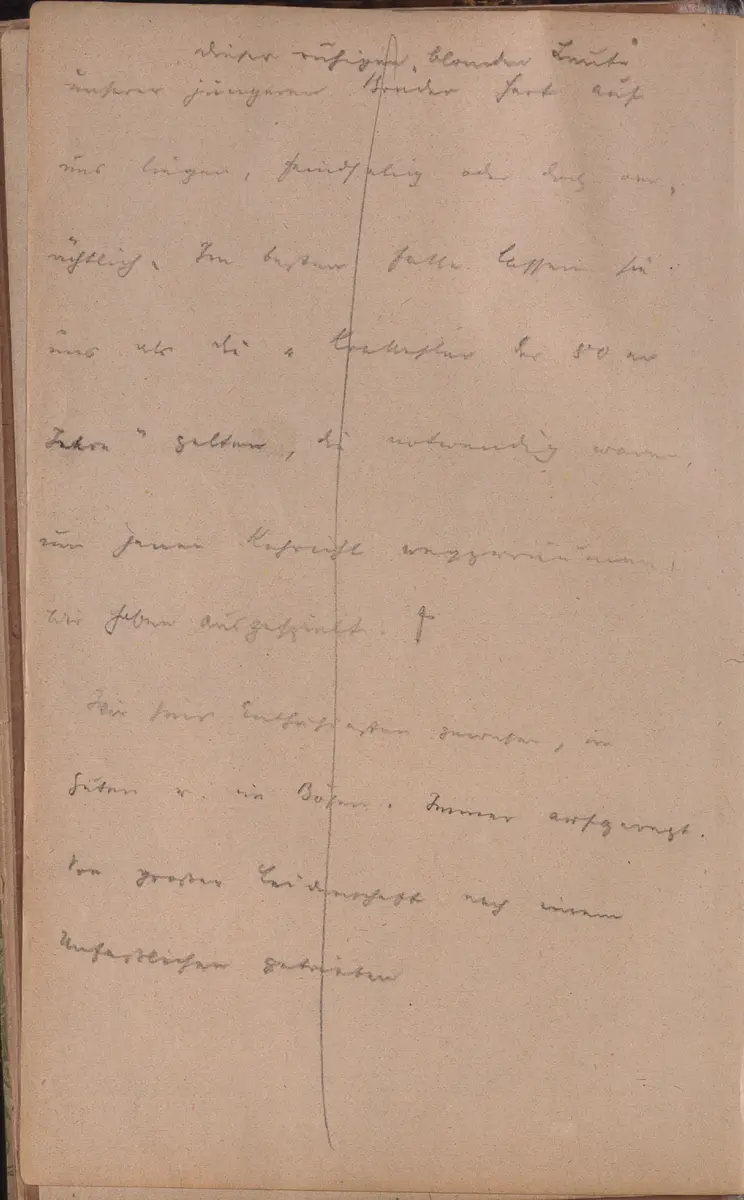 dieser ruhigen, blonden Leute
unserer jüngeren Brüder hart auf
uns liegen, feindselig oder doch ver-
ächtlich. Im besten Falle lassen sie
uns als die „Krakehler der 80 er
Jahre" gelten, die notwendig waren,
um jenen Kehricht wegzuräumen.
Wir haben ausgespielt.
Wir sind Enthusiasten gewesen, im
Guten u. im Bösen. Immer aufgeregt.
Von großer Leidenschaft nach einem
Unfasslichen getrieben